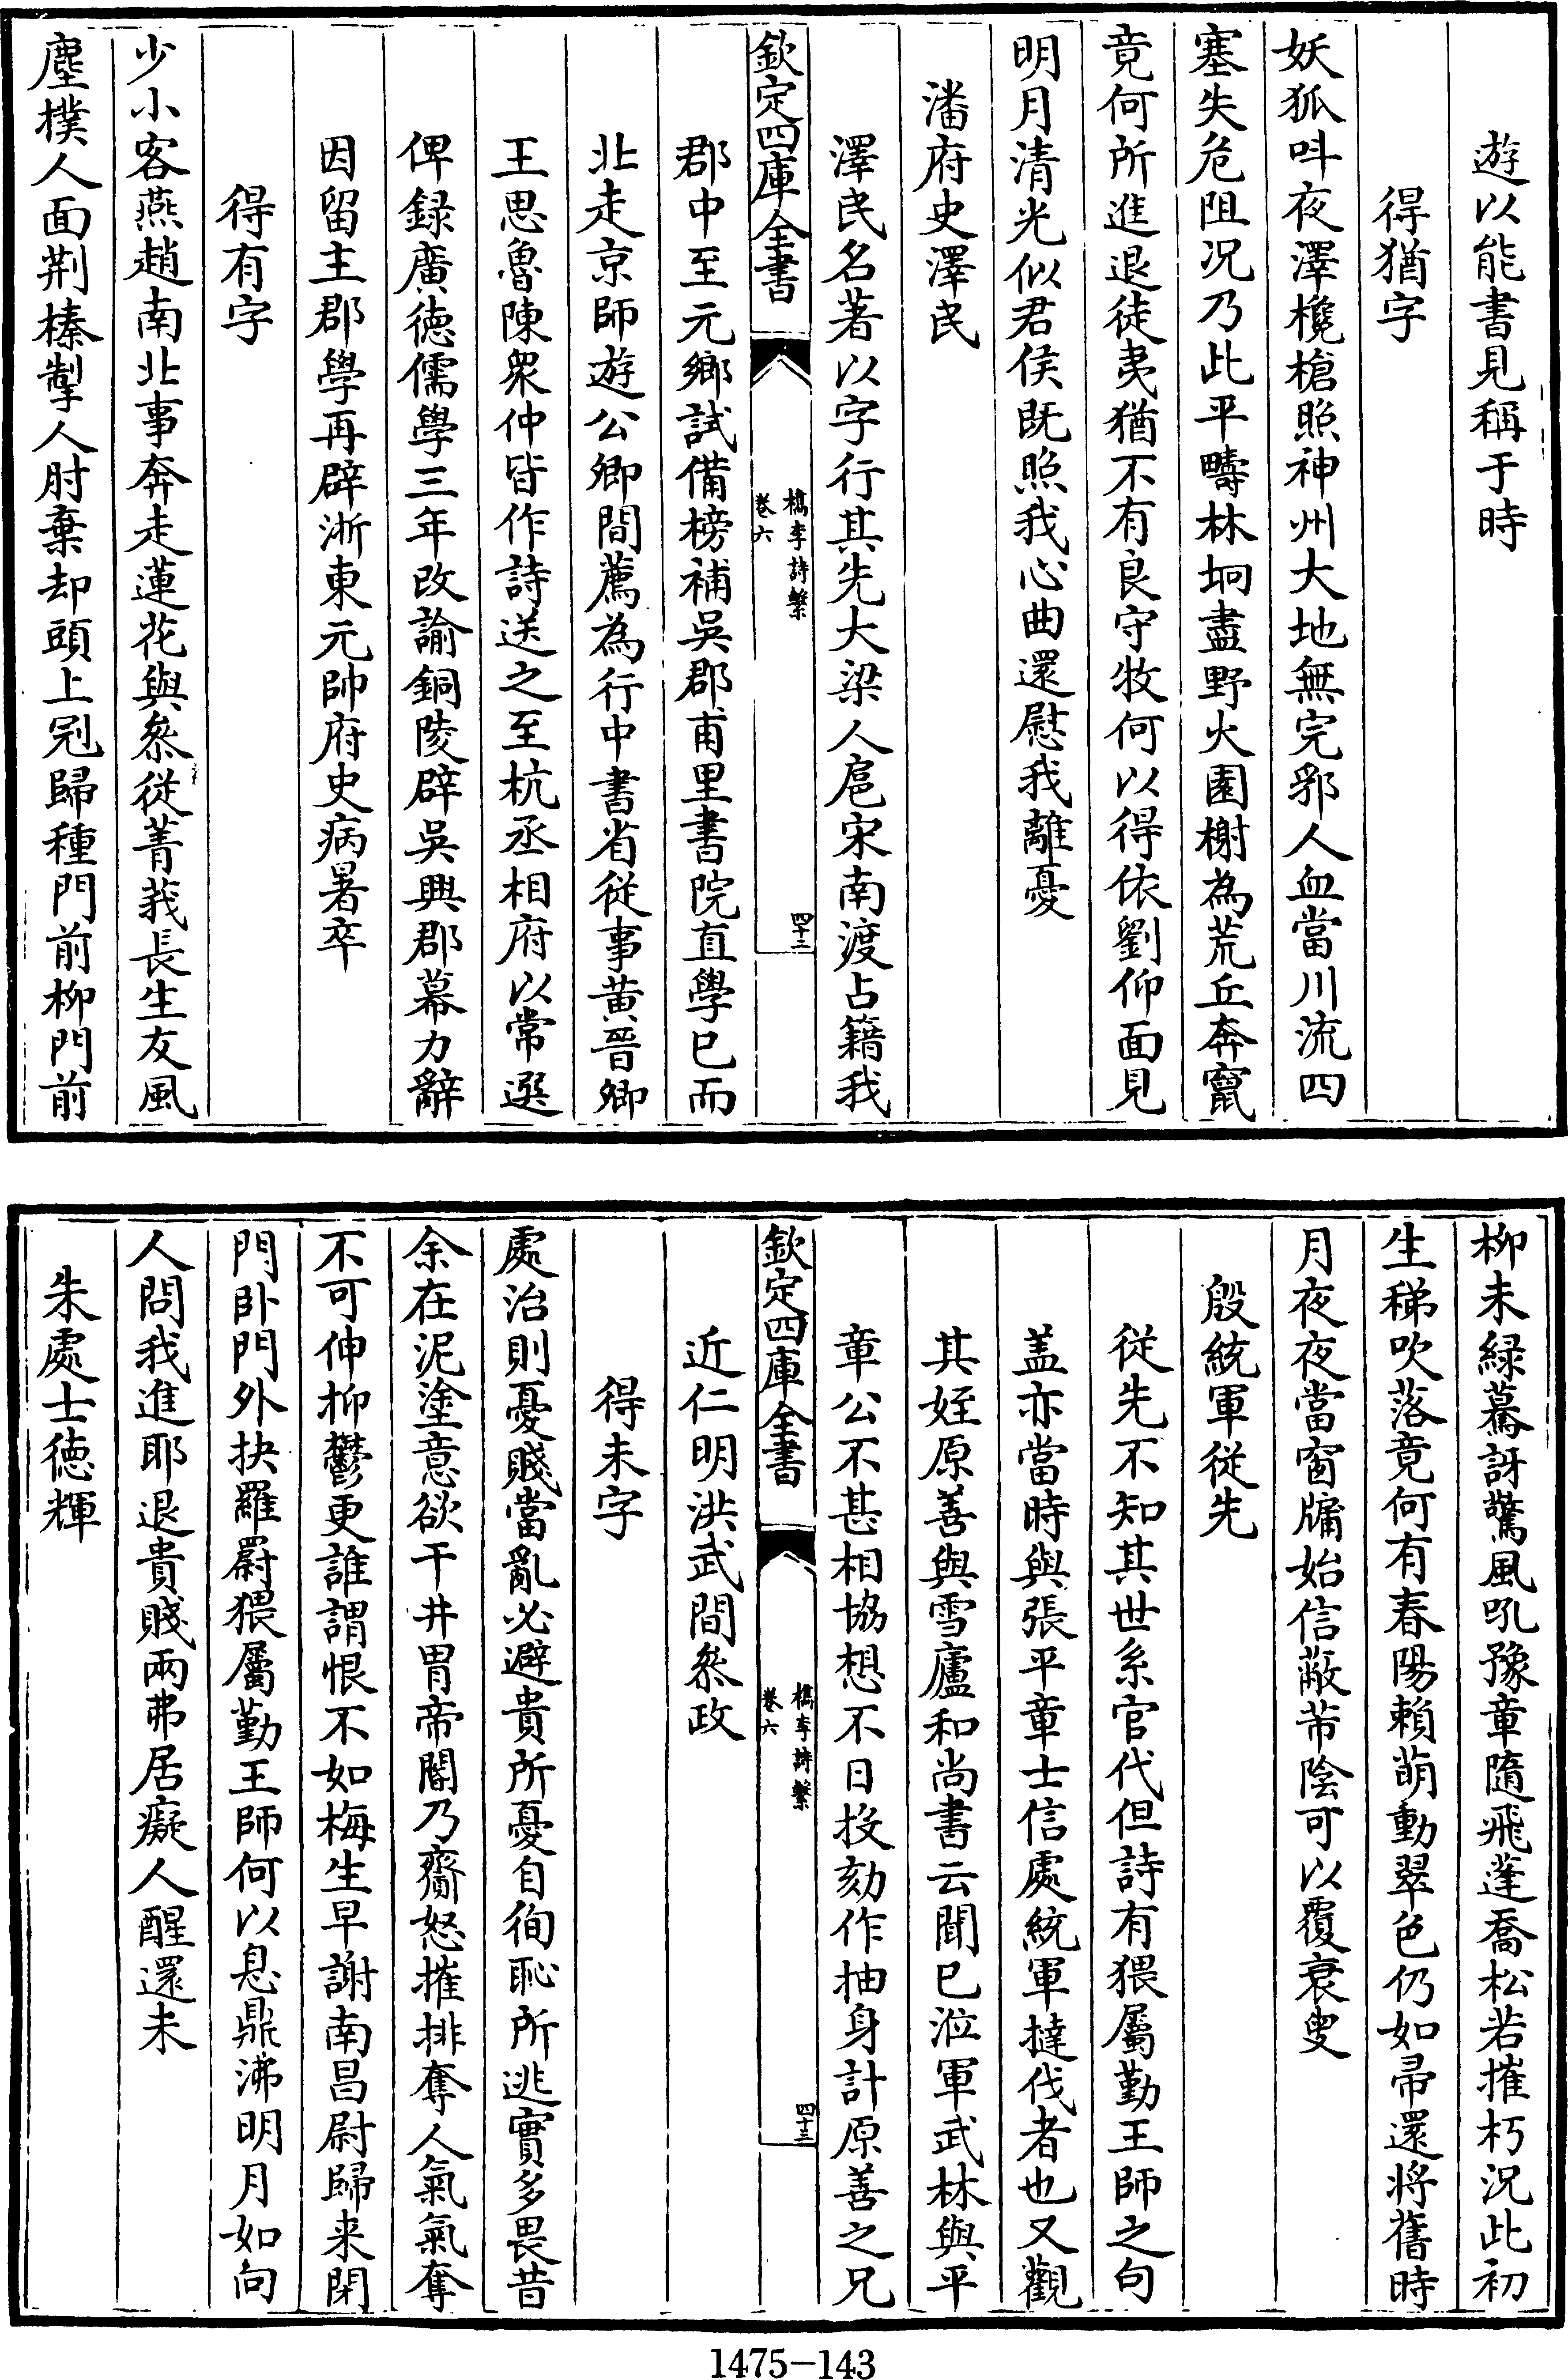 遊以能書見稱于時
得猶字
妖狐呌夜澤欃槍照神州大地無完郛人血當川流四
塞失危阻况乃此平疇林坰盡野火園榭為荒丘奔竄
竟何所進退徒夷猶不有良守牧何以得依劉仰面見
明月清光似君侯既照我心曲還慰我離憂
潘府史澤民
澤民名著以字行其先大梁人扈宋南渡占籍我
欽定四庫全書
檇李詩繫
卷六
四十二
郡中至元鄉試備榜補吳郡甫里書院直學已而
北走京師遊公卿間薦為行中書省從事黄晉卿
王思魯陳衆仲皆作詩送之至杭丞相府以常選
俾録廣德儒學三年改諭銅陵辟吳興郡幕力辭
因留主郡學再辟浙東元帥府史病暑卒
得有字
少小客燕趙南北事奔走蓮花與叅從菁莪長生友風
塵撲人面荆榛掣人肘棄却頭上冠歸種門前柳門前
柳未緑驀訝驚風吼豫章隨飛蓬喬松若摧朽況此初
生稊吹落竟何有春陽頼萌動翠色仍如帚還將舊時
月夜夜當窗牖始信蔽芾陰可以覆衰叟
殷統軍從先
從先不知其世系官代但詩有猥屬勤王師之句
盖亦當時與張平章士信處統軍撻伐者也又觀
其姪原善與雪廬和尚書云聞已涖軍武林與平
章公不甚相協想不日投劾作抽身計原善之兄
欽定四庫全書
檇李詩繫
卷六
四十三
近仁明洪武間叅政
得未字
處治則憂賤當亂必避貴所憂自徇恥所逃實多畏昔
余在泥塗意欲干井胃帝閽乃齌怒摧排奪人氣氣奪
不可伸抑鬱更誰謂恨不如梅生早謝南昌尉歸来閉
門卧門外抉羅罻猥屬勤王師何以息鼎沸明月如向
人問我進耶退貴賤兩弗居癡人醒還未
朱處士德輝
1475-143